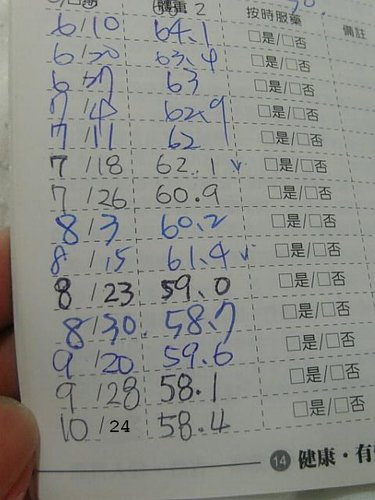 體重 2 按時服藥 備註
6/10 64.1 □是/□否
6/20 63.4 □是/□否
6/27 63 □是/□否
7/4 62.9 □是/□否
7/11 62 □是/□否
7/18 62.1 ✓ □是/□否
7/26 60.9 □是/□否
8/3 60.2 □是/□否
8/15 61.4 ✓ □是/□否
8/23 59.0 □是/□否
8/30 58.7 □是/□否
9/20 59.6 □是/□否
9/28 58.1 □是/□否
10/24 58.4 □是/□否
14 健康·有